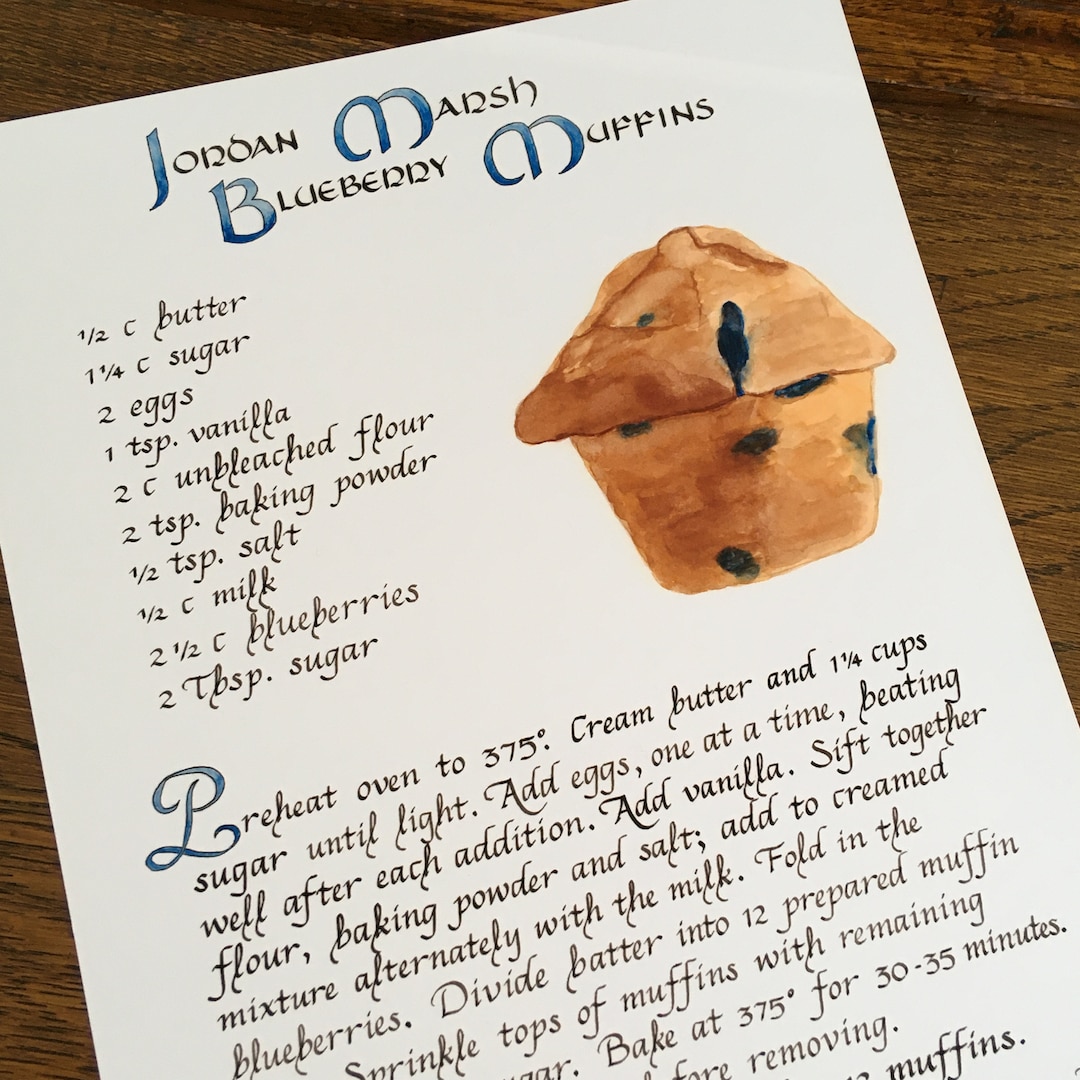 Jordan Marsh
Blueberry Muffins
1/2 c butter
1 1/4 c sugar
2 eggs
1 tsp. vanilla
2 c unbleached flour
2 tsp. baking powder
1/2 tsp. salt
1/2 c milk
2 1/2 c blueberries
2 Tbsp. sugar
Preheat oven to 375°. Cream butter and 1 1/4 cups
sugar until light. Add eggs, one at a time, beating
well after each addition. Add vanilla. Sift together
flour, baking powder and salt; add to creamed
mixture alternately with the milk. Fold in the
blueberries. Divide batter into 12 prepared muffin
Sprinkle tops of muffins with remaining
Bake at 375° for 30-35 minutes.
removing.
muffins.